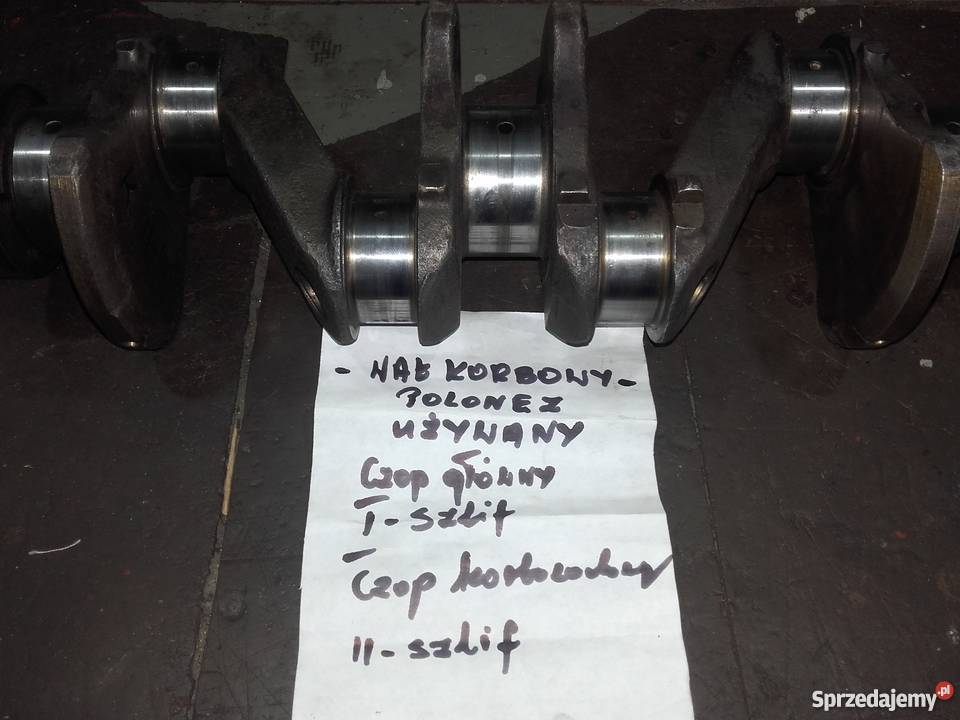 - WAŁ KORBOWY -
POLONEZ
UŻYWANY
Czop główny
I - szlif
Czop korbowodowy
II - szlif
Sprzedajemy.pl